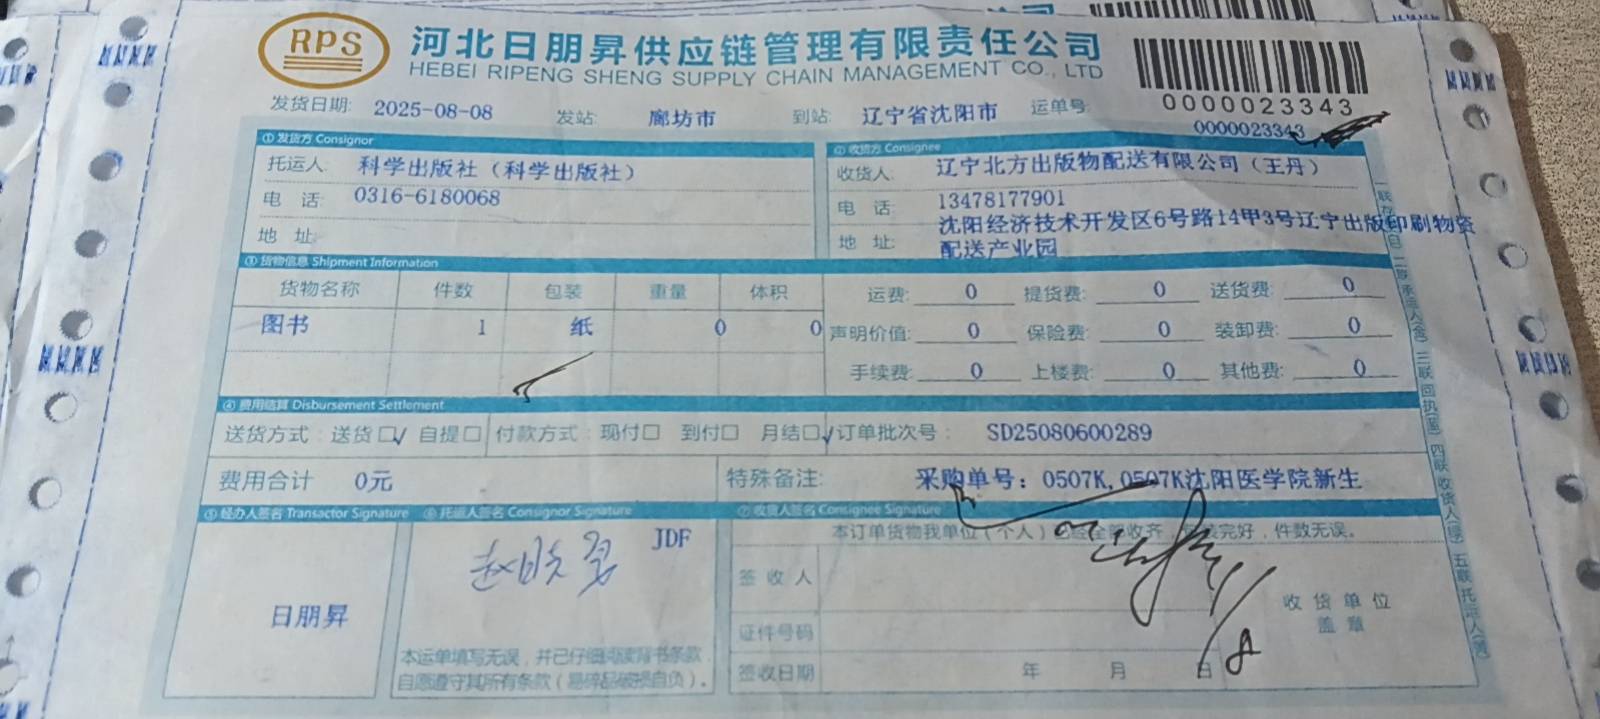 RPS
河北日朋昇供应链管理有限责任公司
HEBEI RIPENG SHENG SUPPLY CHAIN MANAGEMENT CO., LTD
0000023343
发货日期: 2025-08-08 发站: 廊坊市 到站: 辽宁省沈阳市 运单号:
0000023343
①发货方 Consignor
托运人: 科学出版社（科学出版社）
电 话: 0316-6180068
地 址:
②收货方 Consignee
收货人: 辽宁北方出版物配送有限公司（王丹）
电 话: 13478177901
地 址: 沈阳经济技术开发区6号路14甲3号辽宁出版印刷物资
配送产业园
③货物信息 Shipment Information
货物名称 件数 包装 重量 体积
图书 1 纸 0 0
运费: 0 提货费: 0 送货费: 0
声明价值: 0 保险费: 0 装卸费: 0
手续费: 0 上楼费: 0 其他费: 0
④费用结算 Disbursement Settlement
送货方式: 送货□√ 自提□ 付款方式: 现付□ 到付□ 月结□√ 订单批次号: SD25080600289
费用合计 0元 特殊备注: 采购单号：0507K,0507K沈阳医学院新生
⑤经办人签名 Transactor Signature
日朋昇
⑥托运人签名 Consignor Signature
JDF
本运单填写无误，并已仔细阅读背书条款，
自愿遵守其所有条款（易碎品破损自负）。
⑦收货人签名 Consignee Signature
本订单货物我单位（个人）已经全部收齐，包装完好，件数无误。
签 收 人
证件号码
签收日期 年 月 日
收 货 单 位
盖 章
8